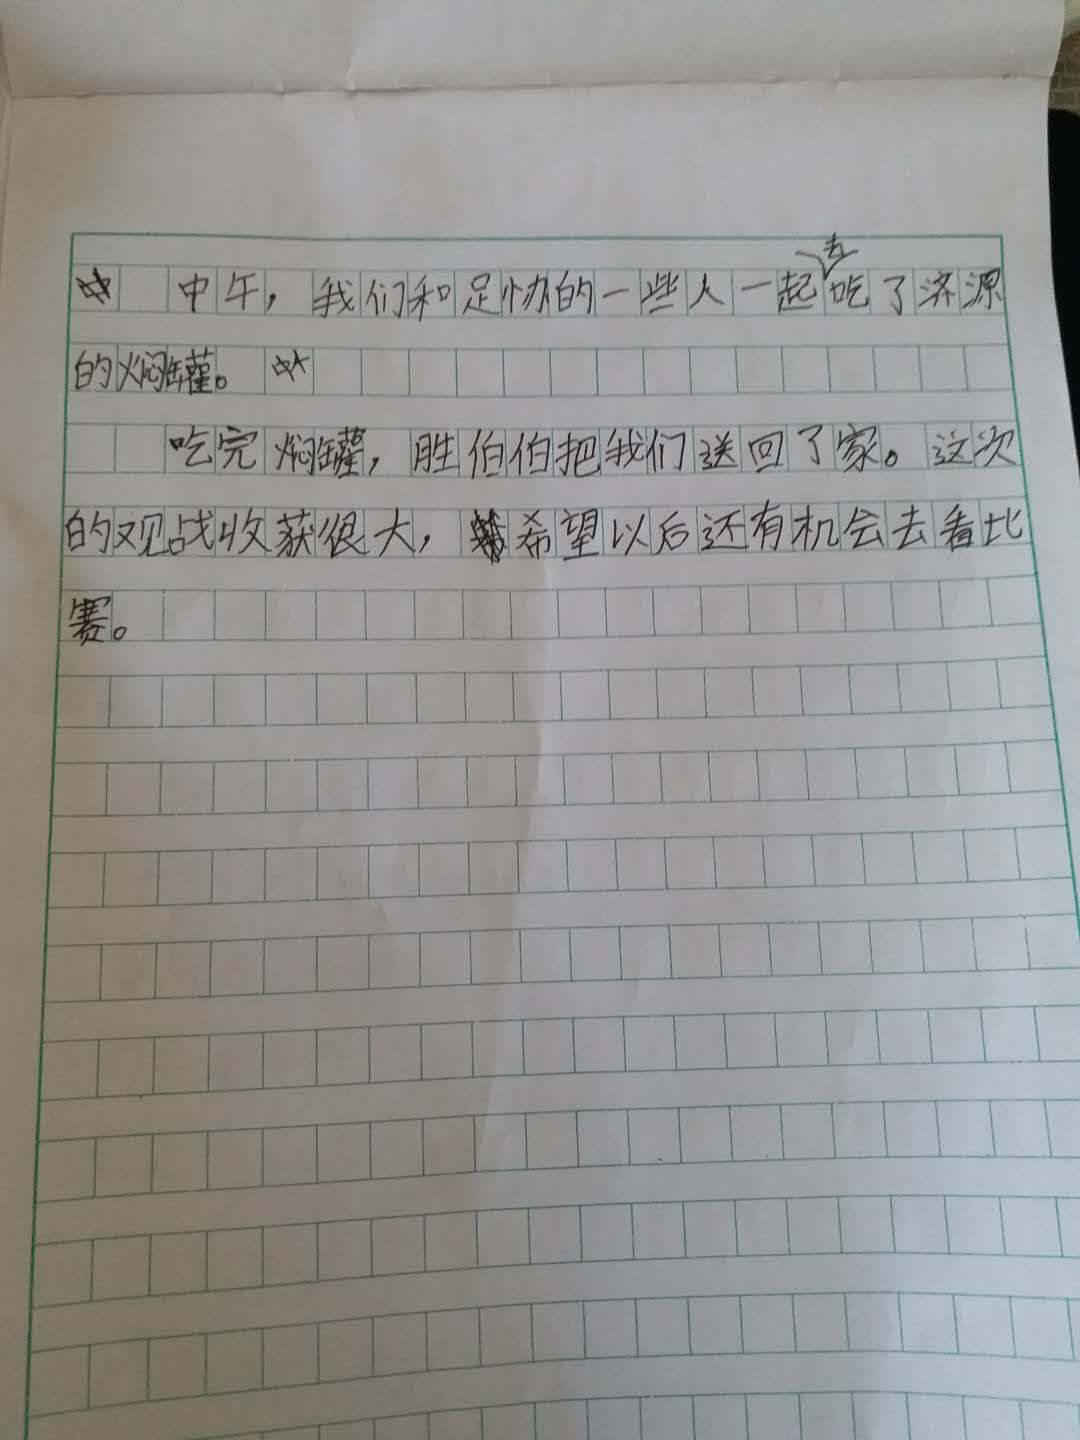 中午，我们和足协的一些人一起去吃了济源
的焖罐。
吃完焖罐，胜伯伯把我们送回了家。这次
的观战收获很大，希望以后还有机会去看比
赛。